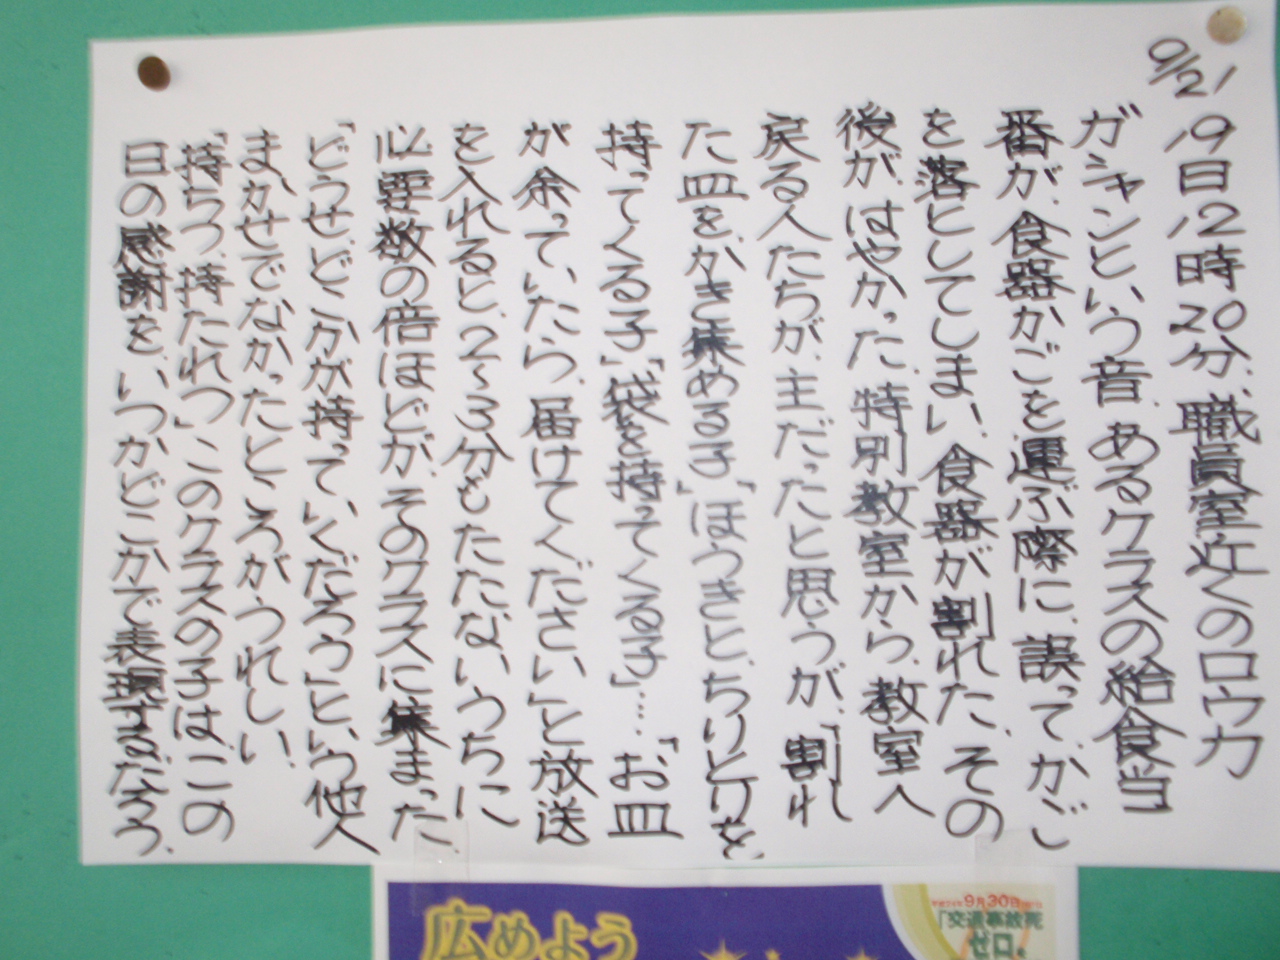 9/21
19日12時20分、職員室近くのロウカ
ガシャンという音、あるクラスの給食当
番が、食器かごを運ぶ際に、誤って、かご
を落としてしまい、食器が割れた、その
後が、はやかった、特別教室から、教室へ
戻る人たちが、主だったと思うが、「割れ
た皿をかき集める子」「ほうきと、ちりとりを、
持ってくる子」「袋を持ってくる子」…、「お皿
が余っていたら、届けてください」と放送
を入れると、2〜3分もたたないうちに
必要数の倍ほどが、そのクラスに集まった、
「どうせ、どこかが持っていくだろう」という他人
まかせでなかったところがうれしい、
「持ちつ、持たれつ」このクラスの子は、この
日の感謝を、いつかどこかで表現するだろう、
広めよう
9月30日
「交通事故死
ゼロ。